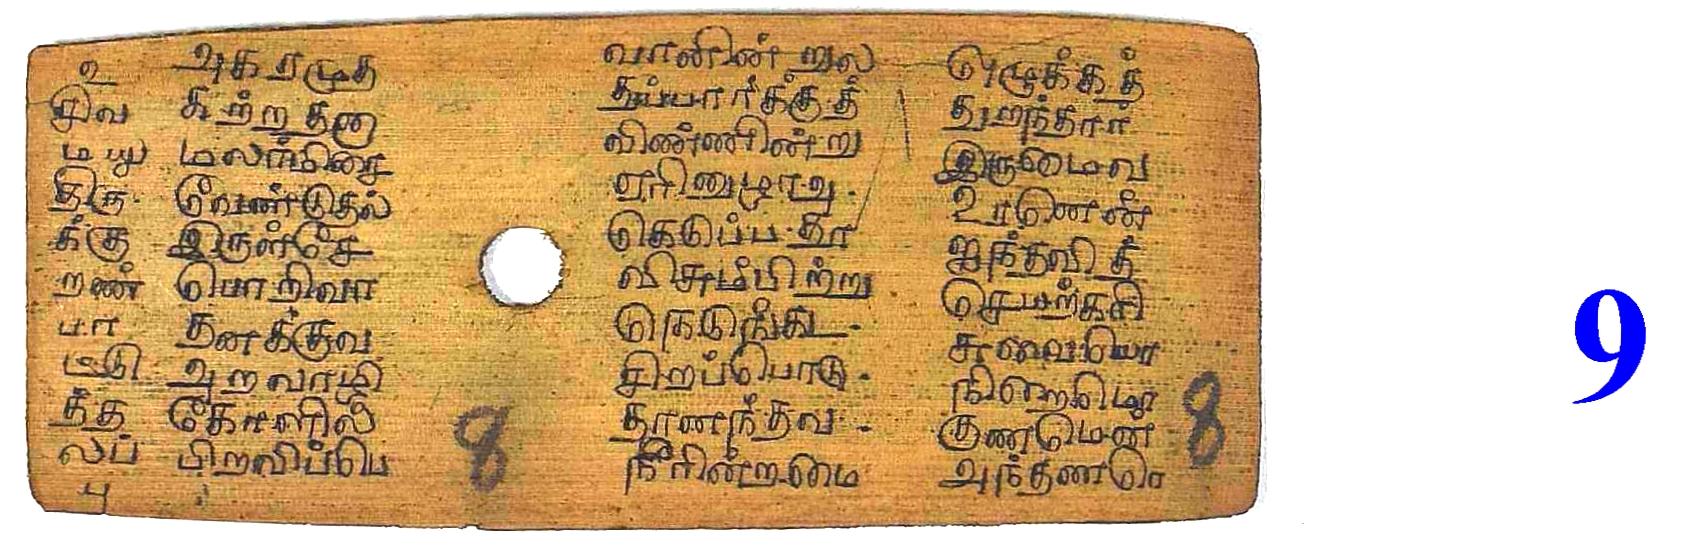 உ
சிவ
மயம்
திரு
க்கு
றண்
பா
ட்டு
த்த
லப்
பு
அகரமுத
கற்றதனா
மலர்மிசை
வேண்டுதல்
இருள்சே
பொறிவா
தனக்குவ
அறவாழி
கோளில்
பிறவிப்பெ
8
வானின்றுல
துப்பார்க்குத்
விண்ணின்று
ஏரினுழாஅ
கெடுப்பதூ
விசும்பிற்று
நெடுங்கட
சிறப்பொடு
தானந்தவ
நீரின்றமை
ஒழுக்கத்
துறந்தார்
இருமைவ
உரனென்
ஐந்தவித்
செயற்கரி
சுவையொ
நிறைமொ
குணமென
அந்தணரெ
8
9